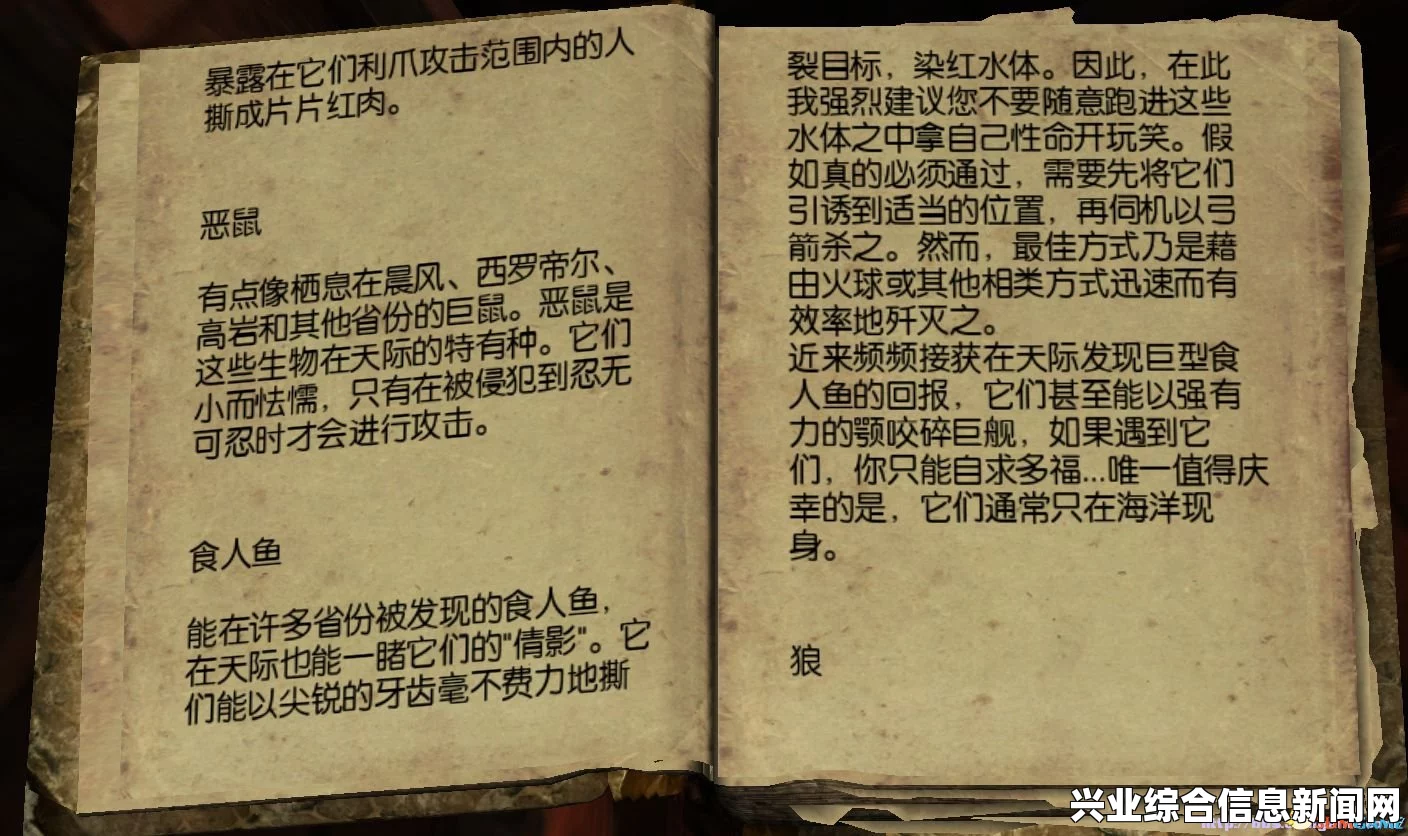 暴露在它们利爪攻击范围内的人
撕成片片红肉。
恶鼠
有点像栖息在晨风、西罗帝尔、
高岩和其他省份的巨鼠。恶鼠是
这些生物在天际的特有种。它们
小而怯懦，只有在被侵犯到忍无
可忍时才会进行攻击。
食人鱼
能在许多省份被发现的食人鱼，
在天际也能一睹它们的"倩影"。它
们能以尖锐的牙齿毫不费力地撕
裂目标，染红水体。因此，在此
我强烈建议您不要随意跑进这些
水体之中拿自己性命开玩笑。假
如真的必须通过，需要先将它们
引诱到适当的位置，再伺机以弓
箭杀之。然而，最佳方式乃是藉
由火球或其他相类方式迅速而有
效率地歼灭之。
近来频频接获在天际发现巨型食
人鱼的回报，它们甚至能以强有
力的颚咬碎巨舰，如果遇到它
们，你只能自求多福...唯一值得庆
幸的是，它们通常只在海洋现
身。
狼
兴业综合信息新闻网